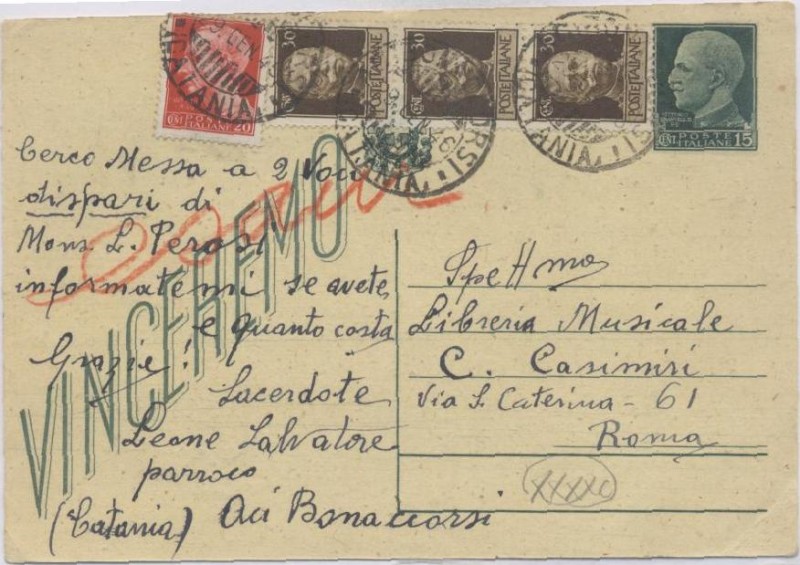 CENT. POSTE ITALIANE 20
30 CENT. POSTE ITALIANE
30 CENT. POSTE ITALIANE
30 CENT. POSTE ITALIANE
CENT. POSTE ITALIANE 15
CATANIA
Cerco Messa a 2 Voci
dispari di
Mons. L. Perosi
informatemi se avete,
e quanto costa
Grazie!
Sacerdote
Leone Salvatore
parroco
(Catania) Aci Bonaccorsi
VINCEREMO
Spettma
Libreria Musicale
C. Casimiri
Via S. Caterina - 61
Roma